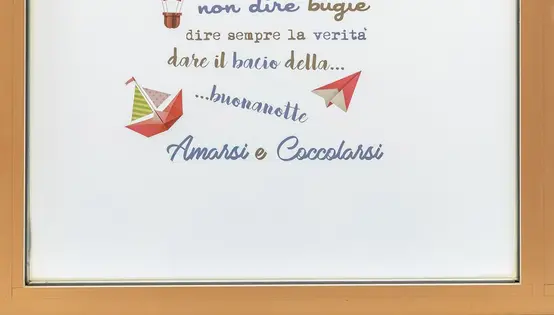 non dire bugie
dire sempre la verità
dare il bacio della...
...buonanotte
Amarsi e Coccolarsi